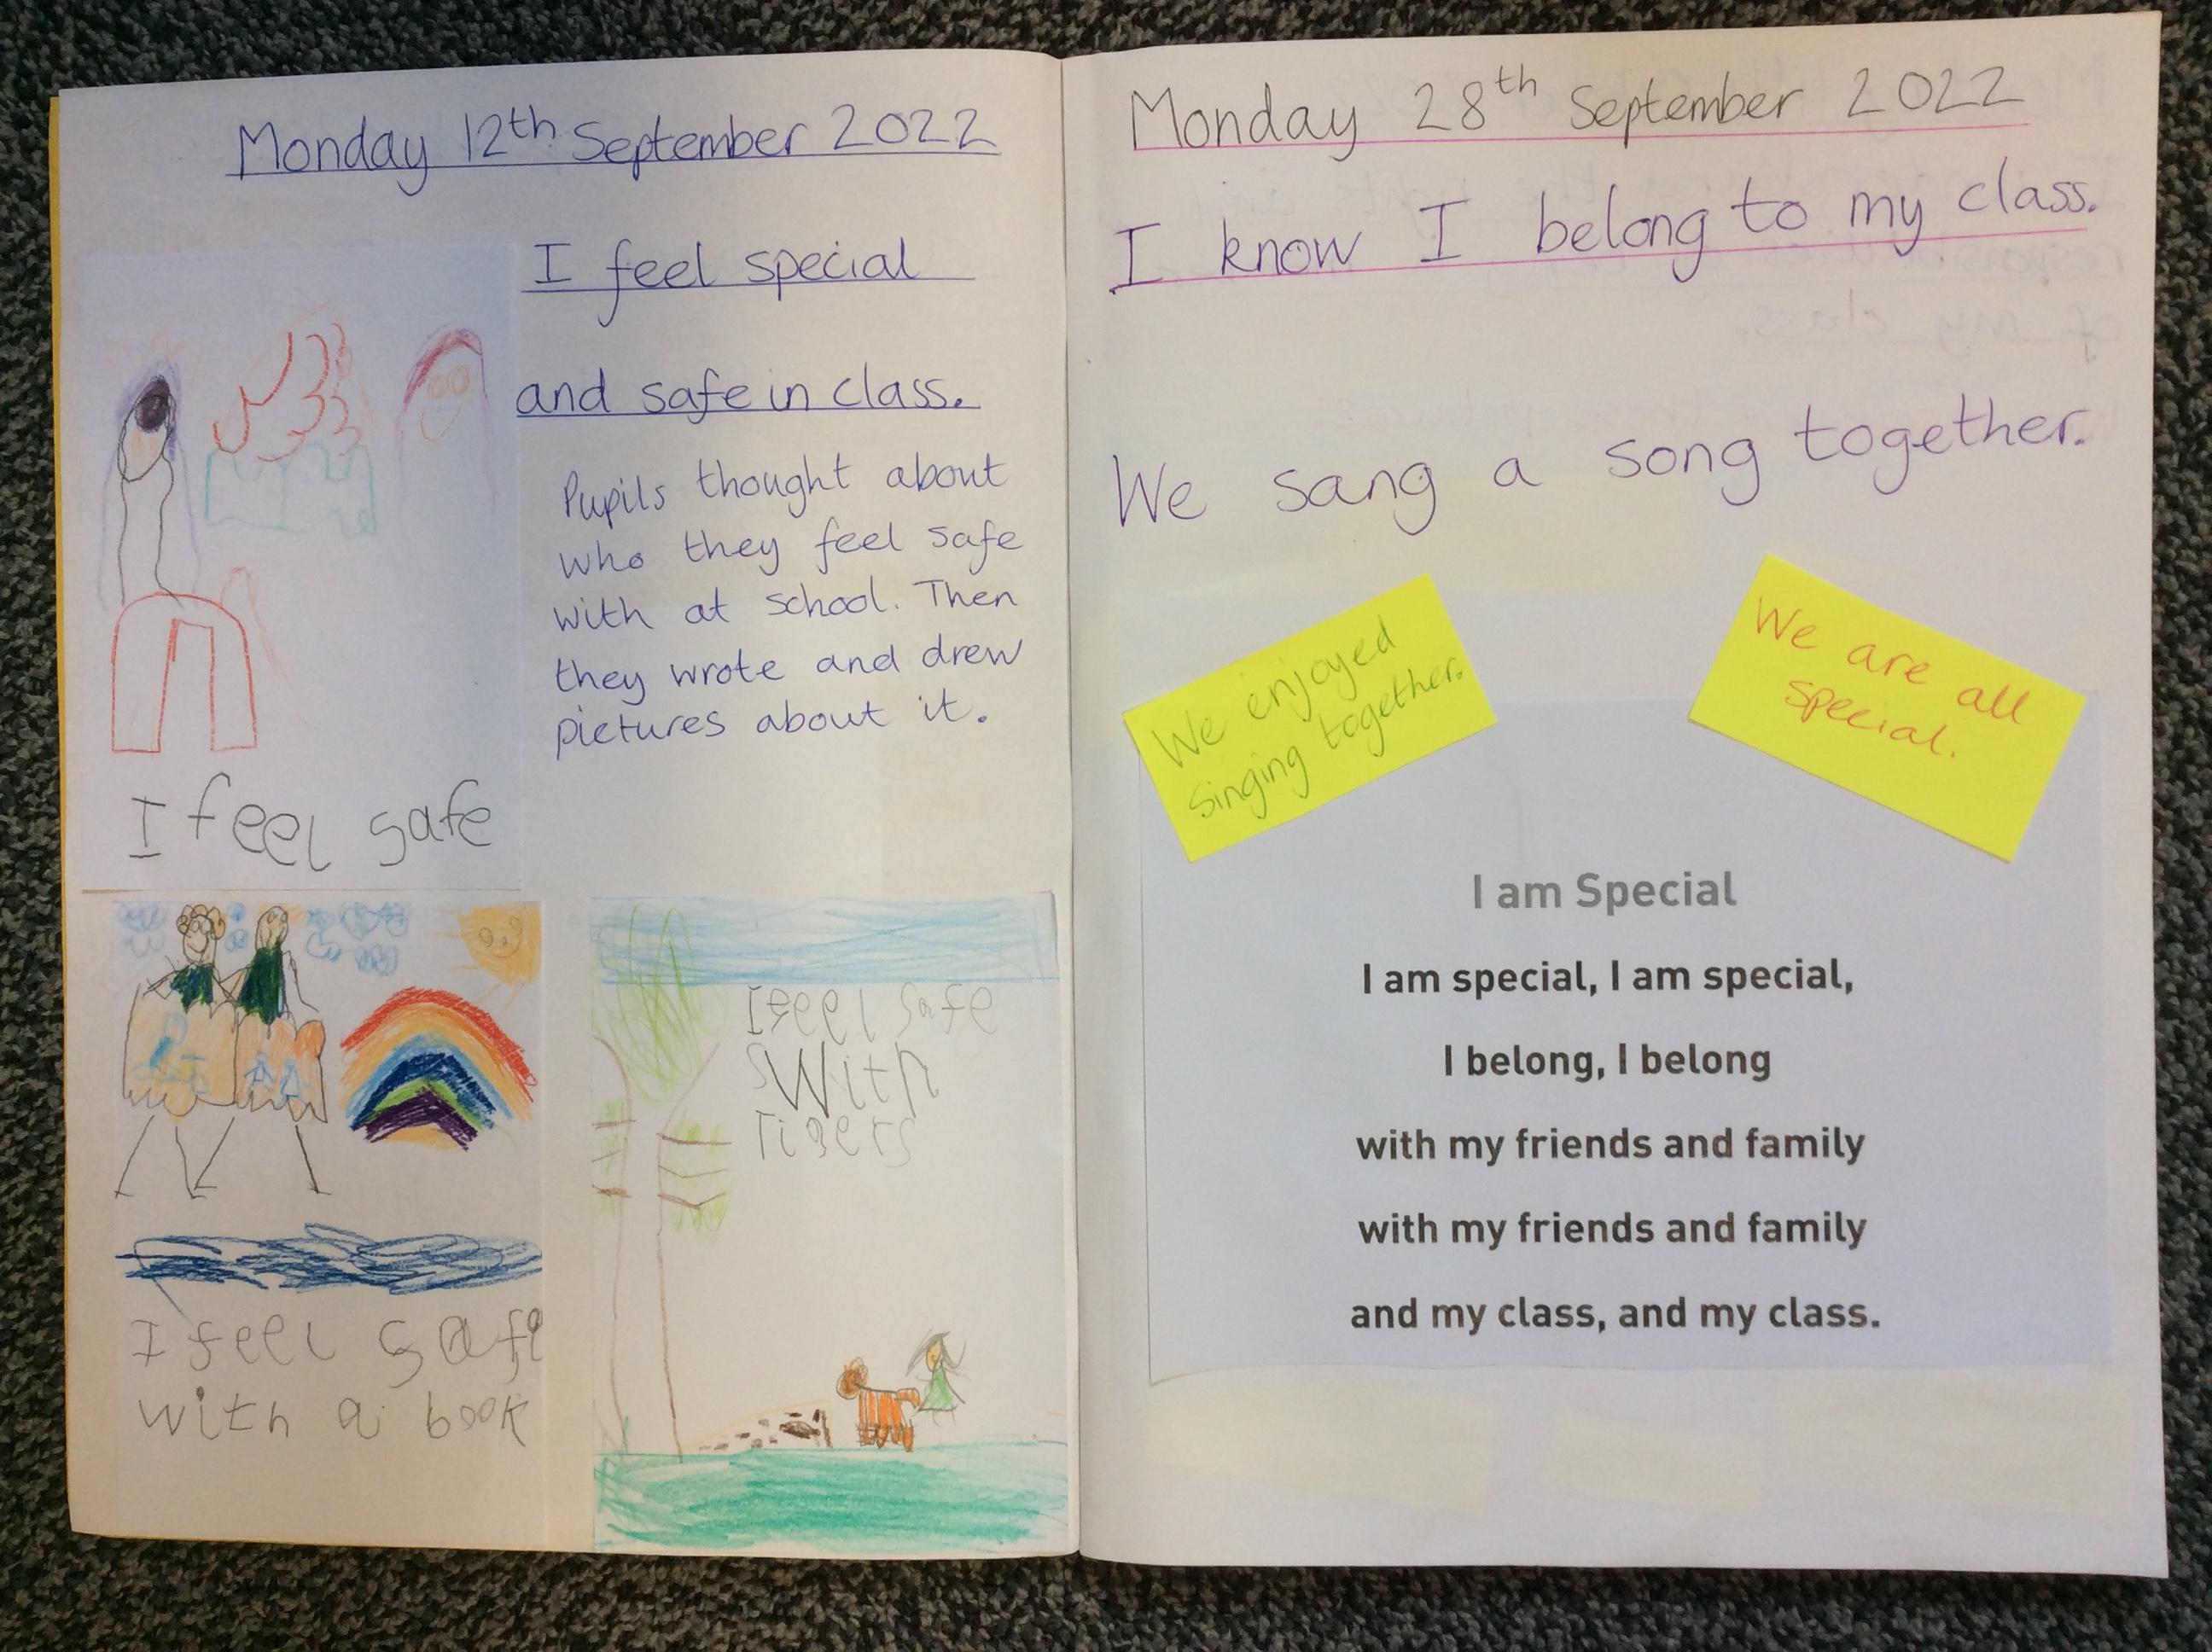 Monday 12th September 2022
I feel special
and safe in class.
Pupils thought about
who they feel safe
with at school. Then
they wrote and drew
pictures about it.
I feel safe
I feel safe
with a book
I feel safe
With
Tigers
Monday 28th September 2022
I know I belong to my class.
We sang a song together.
We enjoyed
singing together.
We are all
special.
I am Special
I am special, I am special,
I belong, I belong
with my friends and family
with my friends and family
and my class, and my class.